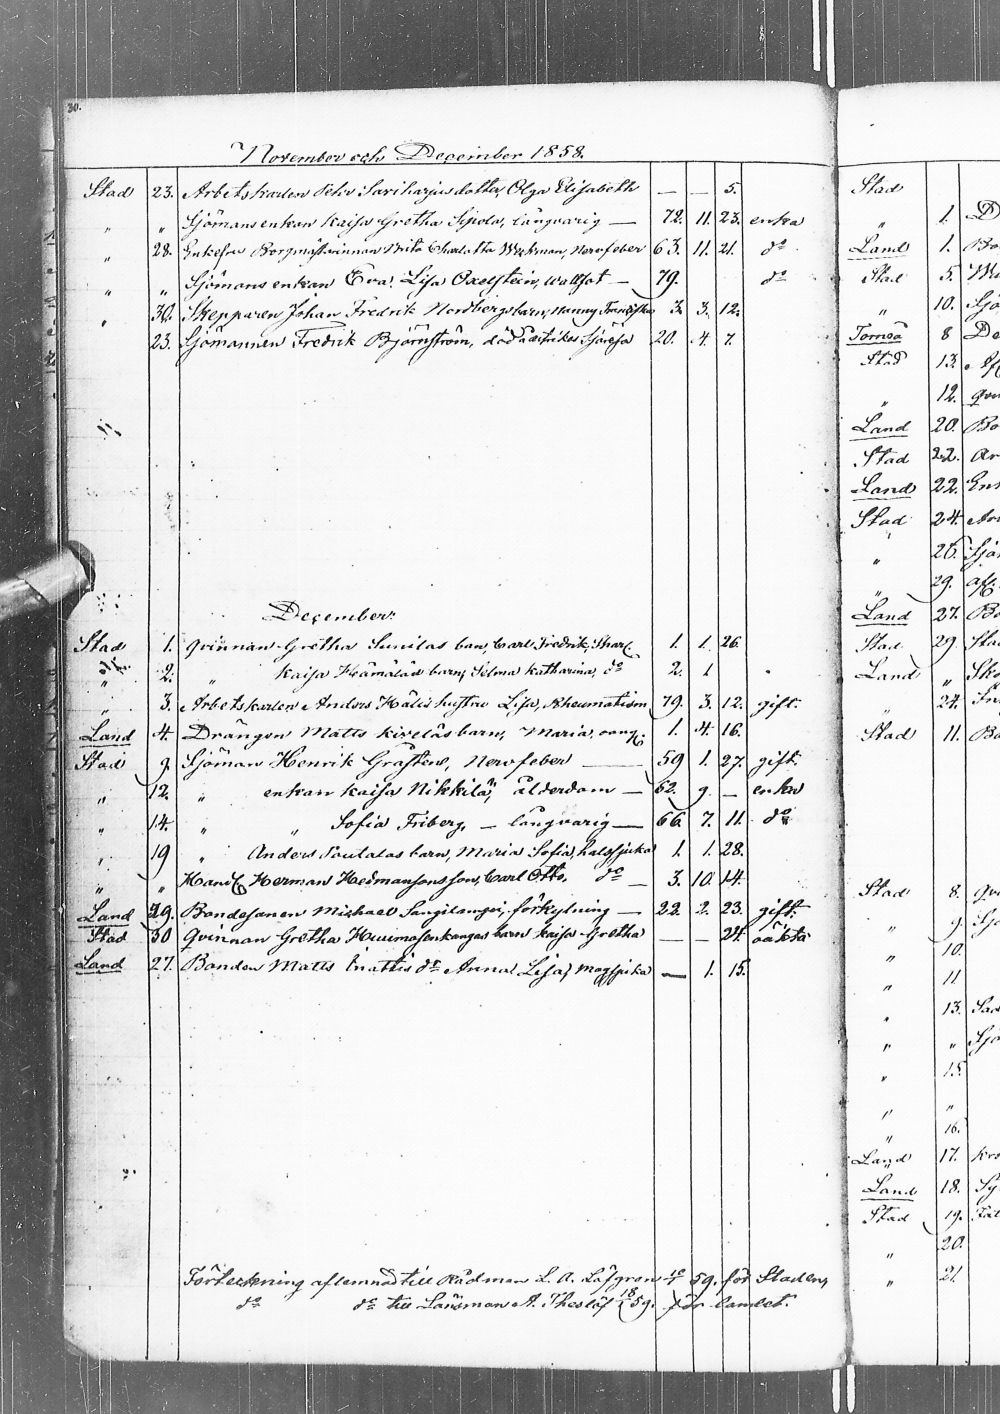 30.
November och December 1858.
Stad 23. Arbetskarlen Pehr Sariharjus dotter, Olga Elisabeth — — 5.
" " Sjömansenkan Kaisa Gretha Sipola, långvarig — 72. 11. 23. enka
" 28. Enkefru Borgmästarinnan Brita Charlotta Wickman, Nervfeber 63. 11. 21. do
" " Sjömansenkan Eva Lisa Oxelstein, Wattsot — 79. do
" 30. Skepparen Johan Fredrik Nordbergs barn, Nanny Franciska 3. 3. 12.
23. Sjömannen Fredrik Björnström, död å utrikes Sjöresa 20. 4. 7.
December.
Stad 1. Qvinnan Gretha Sunilas barn, Carl Fredrik, Skarl. 1. 1. 26.
" 2. " Kaisa Hämäläs barn, Selma Katharina, do 2. 1
" 3. Arbetskarlen Anders Hälis hustru Lisa, Rheumatism 79. 3. 12. gift.
Land 4. Drängen Matts Kiveläs barn, Maria, 1. 4. 16.
Stad 9. Sjöman Henrik Gråsten, Nervfeber — 59 1. 27. gift.
" 12. " enkan Kaisa Nikkilä, ålderdom — 62. 9. — enka
" 14. " " Sofia Friberg, — långvarig — 66. 7. 11. do
" 19 " Anders Pautalas barn, Maria Sofia, halssjuka 1. 1. 28.
" " Handl. Herman Hermansons son, Carl Otto, do — 3. 10. 14.
Land 29. Bondesonen Michael Sangilampi, förkylning — 22. 2. 23. gift.
Stad 30 Qvinnan Gretha Huuimosenkangas barn Kaisa Gretha — — 24. oäkta
Land 27. Bonden Matts do Anna Lisa, — 1. 15.
Förteckning aflemnad till Rådman L. A. Löfgren 59. för Staden,
do do till Länsman A. Theslöf 18/1 59. för landet.
Stad
" 1.
Land 1. Bo
Stad 5.
10. Sjö
Torneå 8 De
Stad 13.
" 12. Qvi
Land 20. Bo
Stad 22. Ar
Land 22. Enk
Stad 24.
" 26. Sjö
" 29. afl.
Land 27. Bo
Stad 29. Sta
Land " Sko
" 24. In
Stad 11. Bo
Stad 8. Qvi
" 9. Sjö
" 10.
" 11
" 13. Sad
" " Sjö
" 15.
" "
" 16.
Land 17. Kro
Land 18. Sy
Stad 19.
" 20.
" 21.